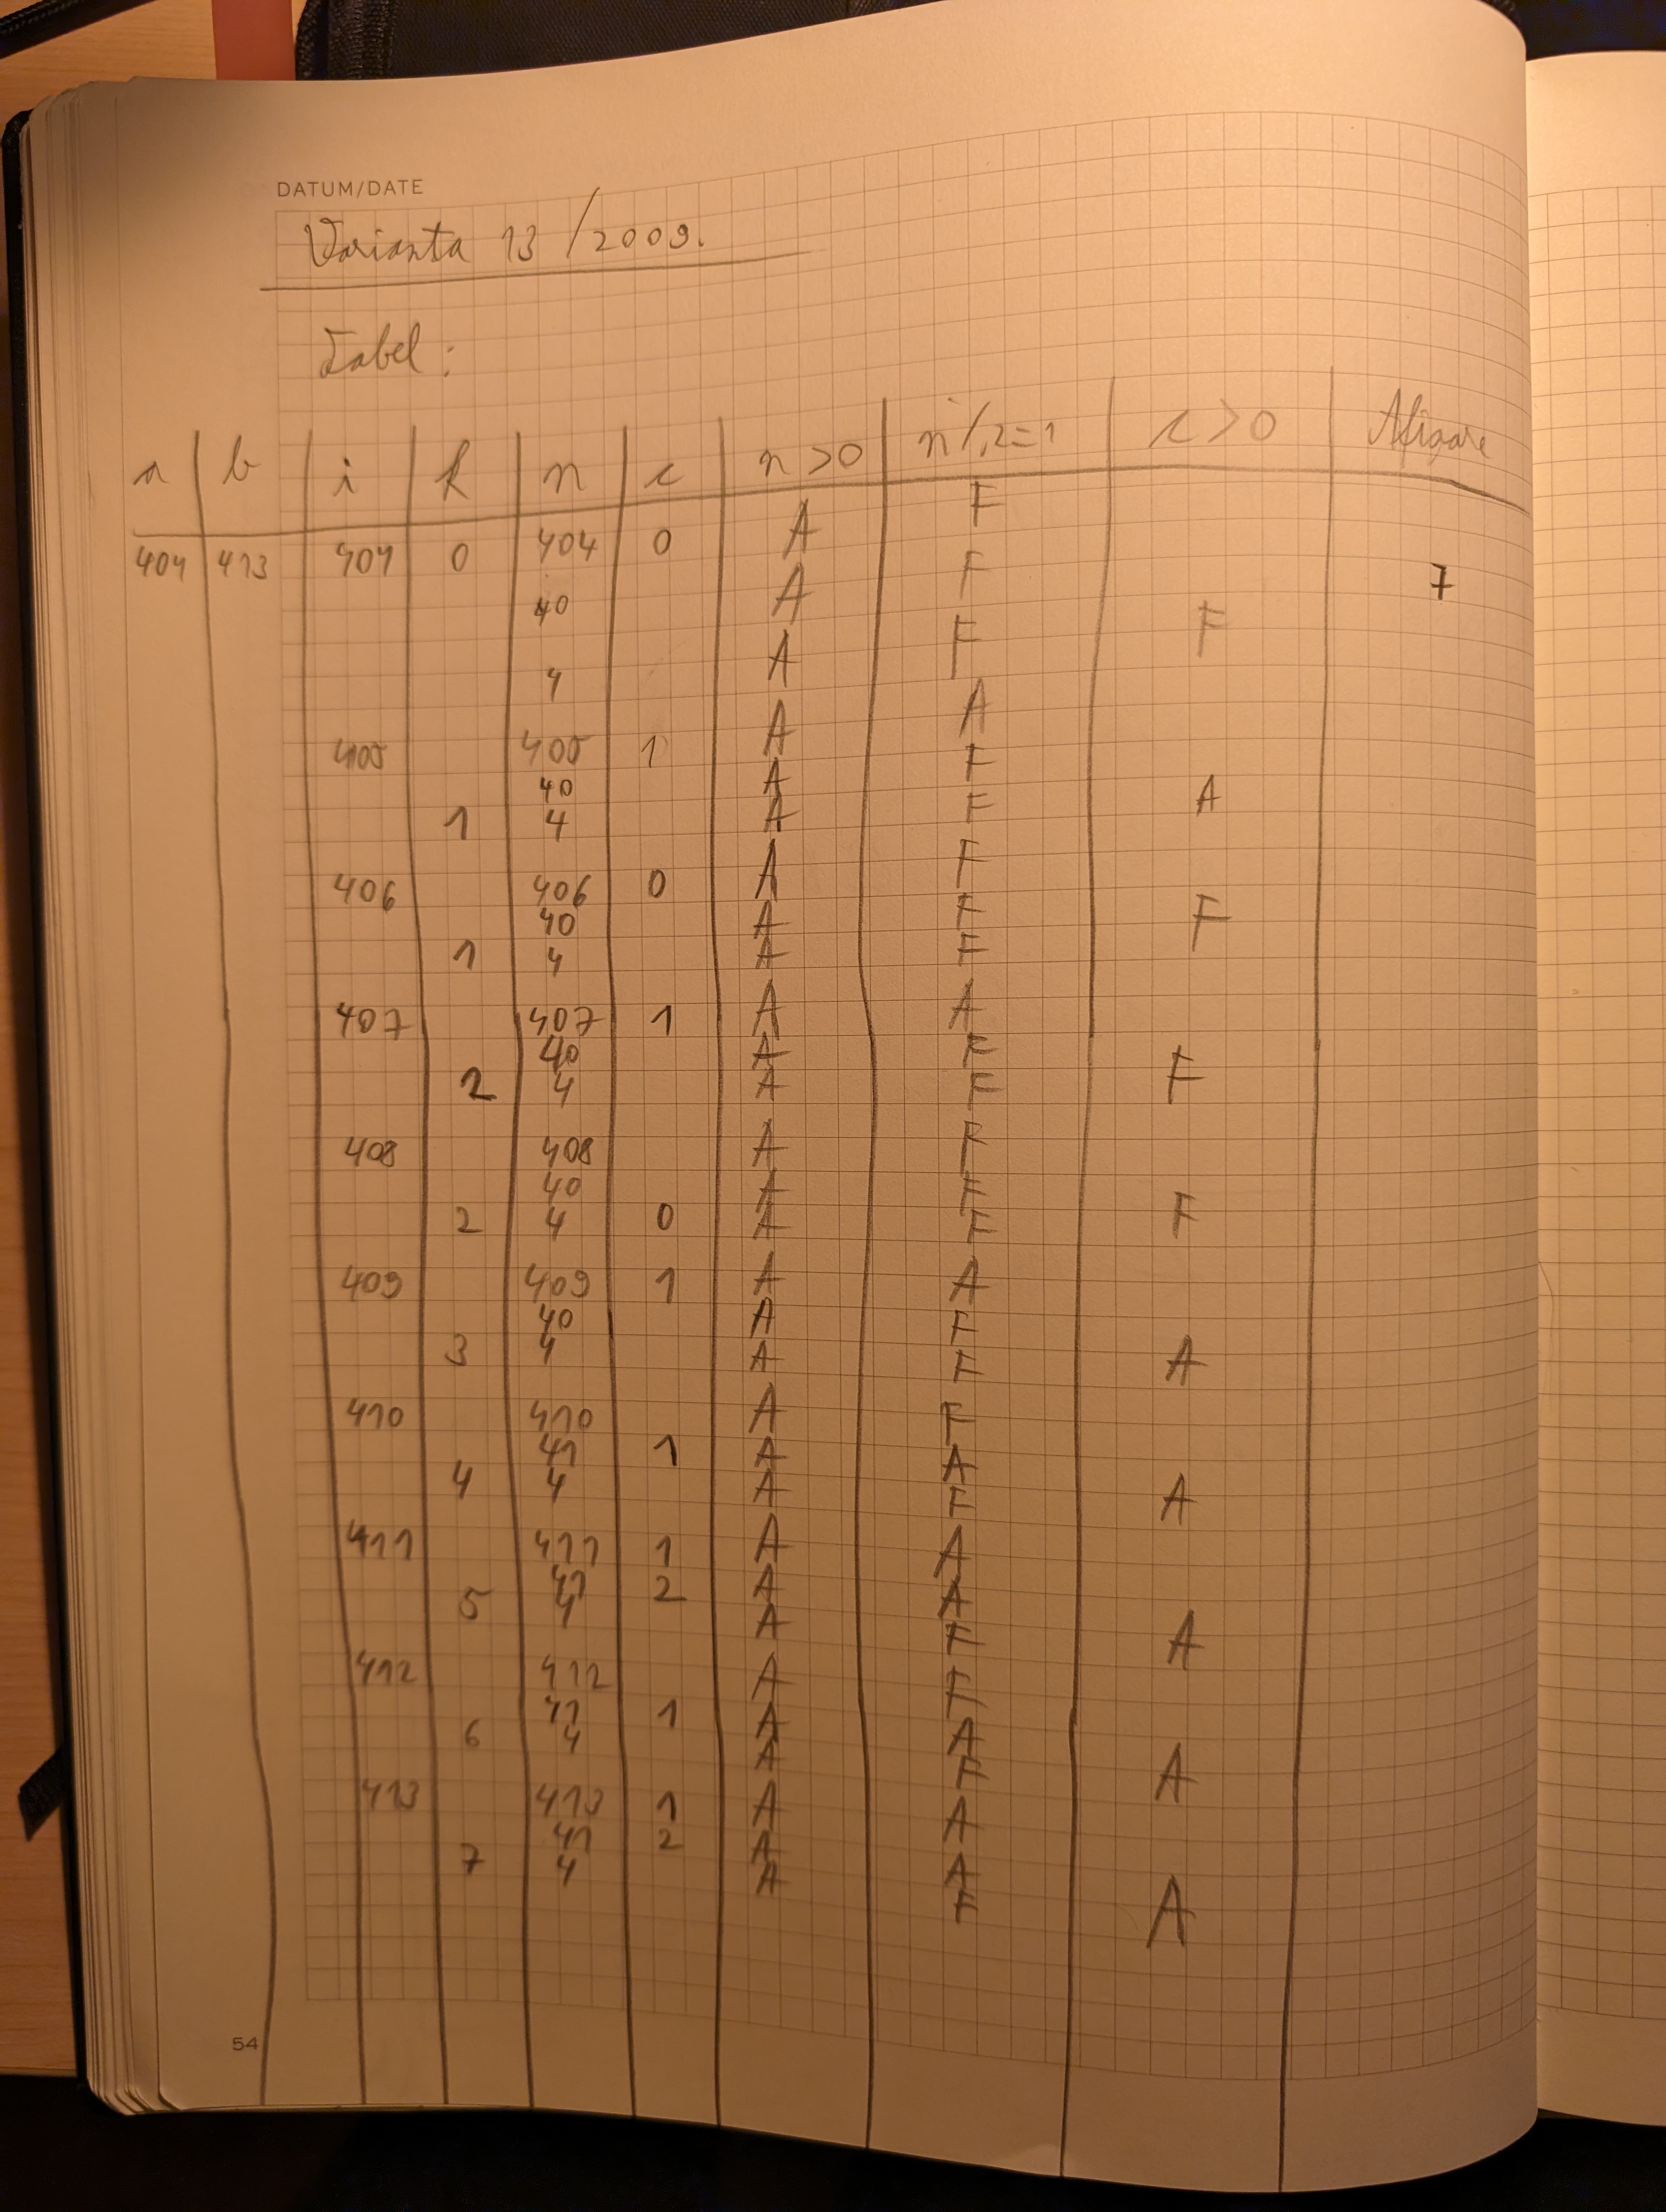 DATUM/DATE
Varianta 13 / 2009.
Tabel :
a b i k n c n >0 n%2=1 c >0 Afișare
404 413 404 0 404 0 A F 7
40 A F F
4 A F
405 405 1 A A
40 A F A
1 4 A F
406 406 0 A F
40 A F F
1 4 A F
407 407 1 A A
40 A F F
2 4 A F
408 408 A F
40 A F F
2 4 0 A F
409 409 1 A A
40 A F
3 4 A F A
410 410 A F
41 1 A A
4 4 A F A
411 411 1 A A
41 2 A A
5 4 A F A
412 412 A F
41 1 A A
6 4 A F A
413 413 1 A A
41 2 A A
7 4 A F A
54